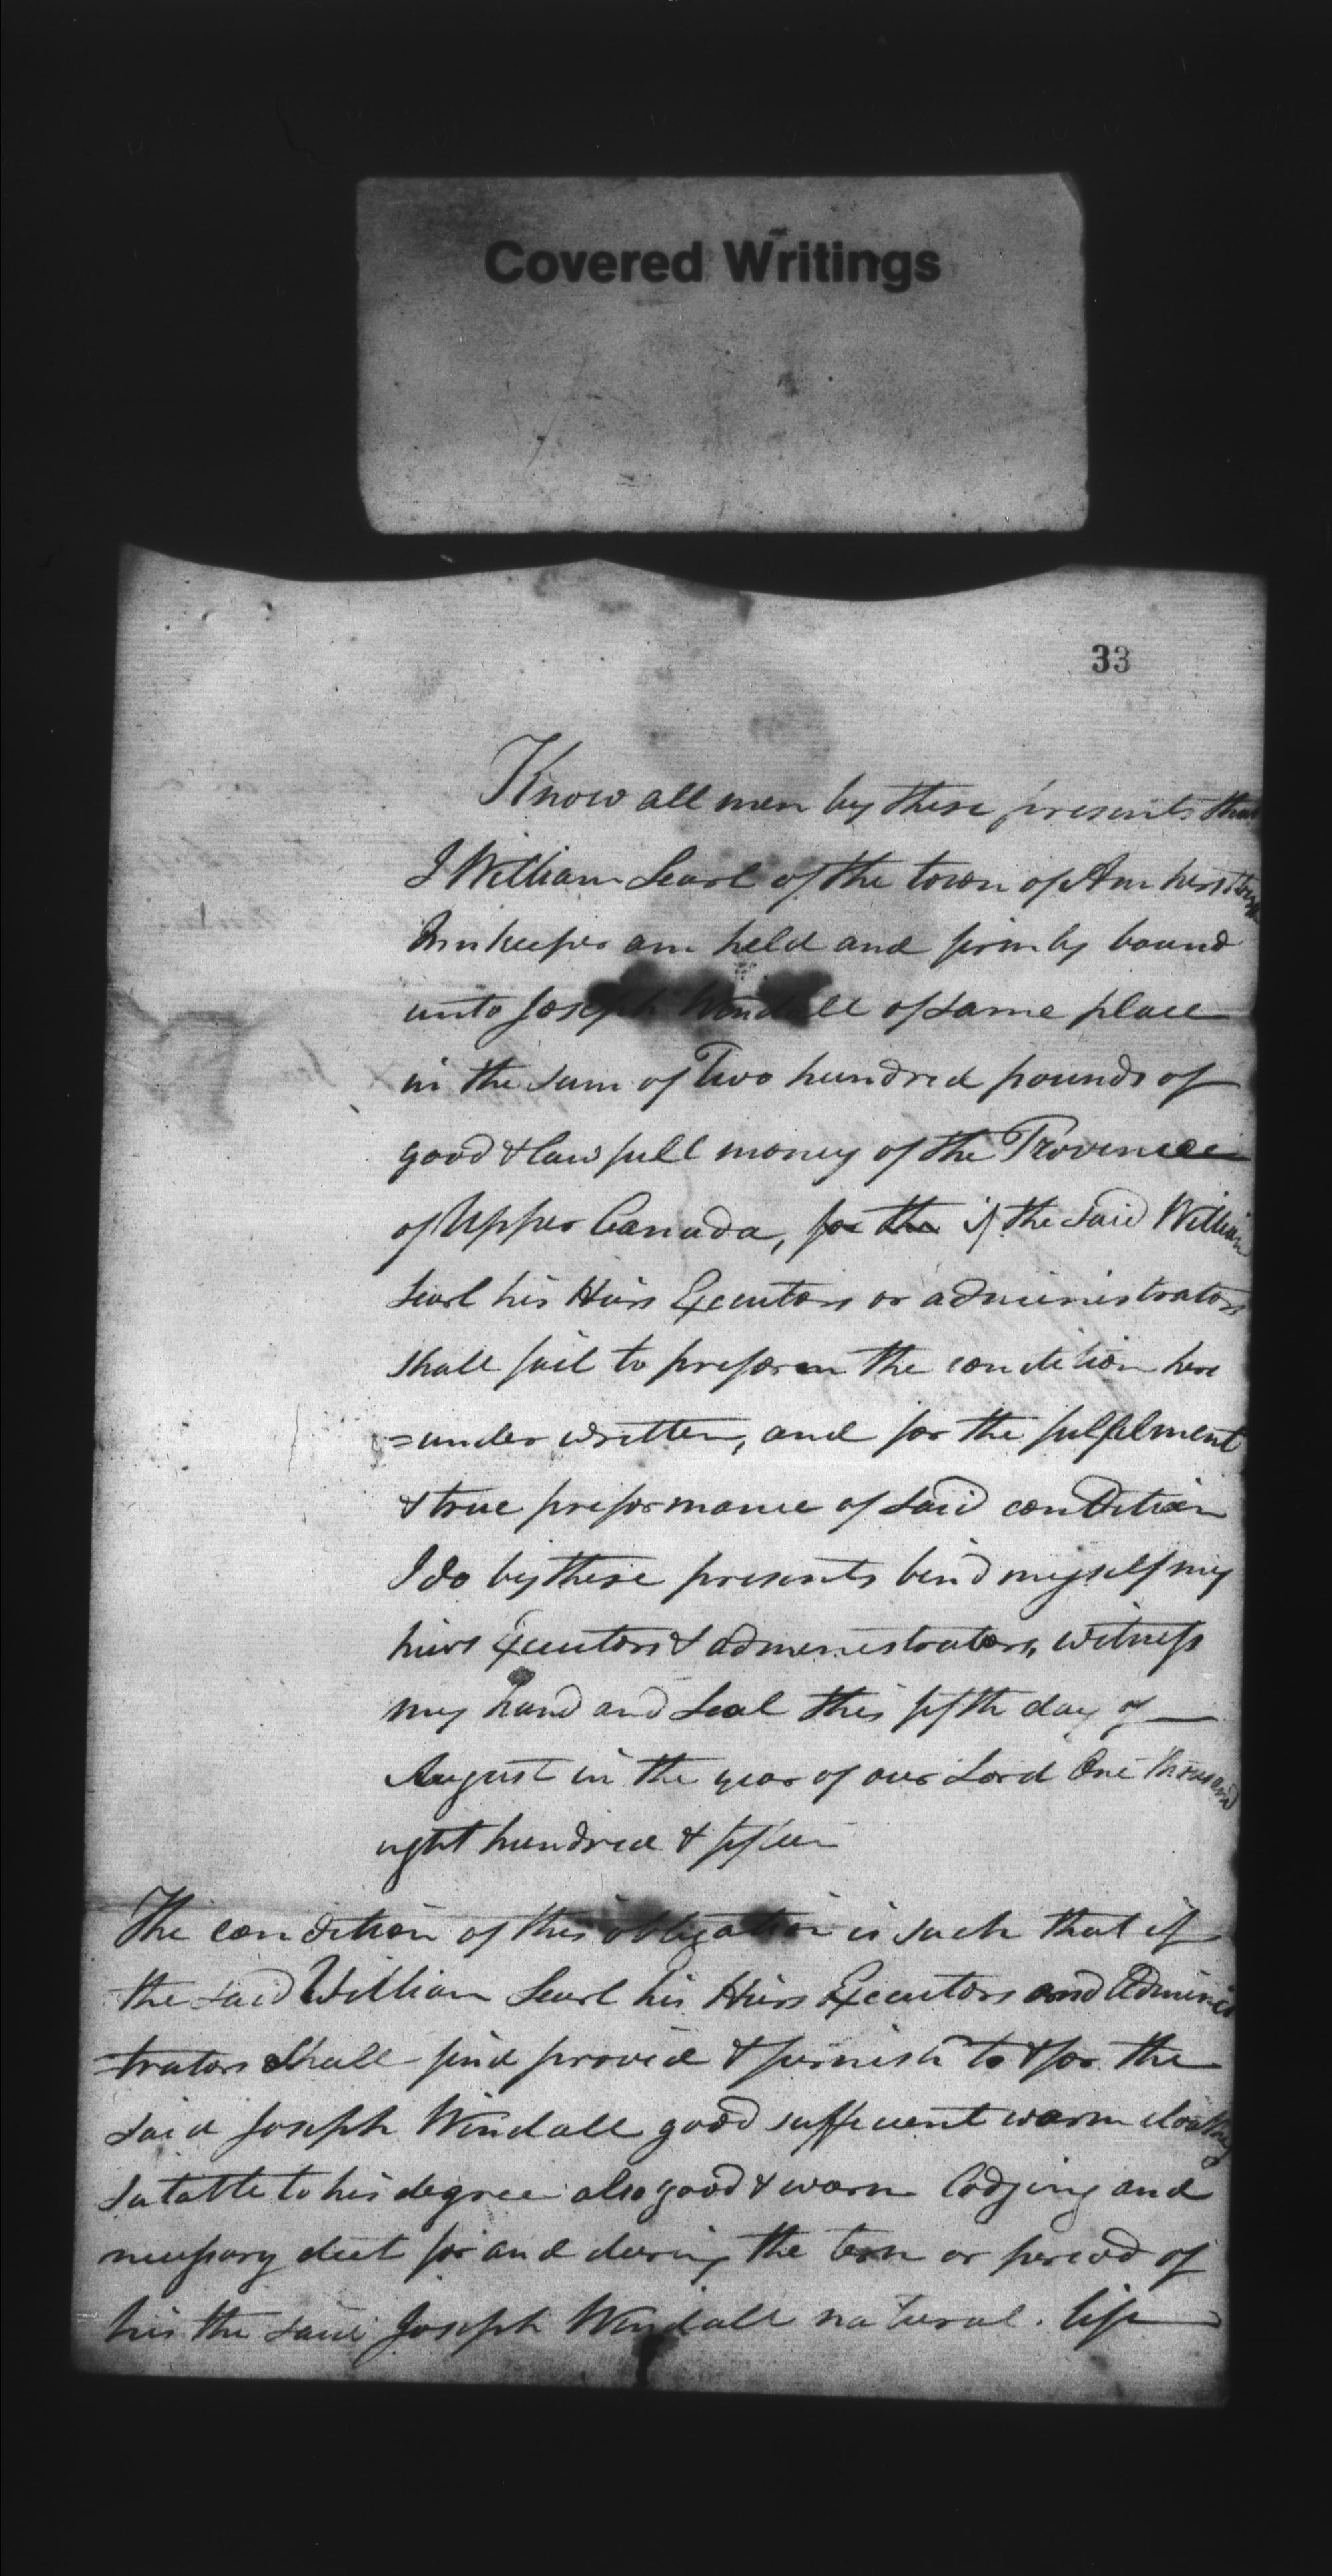 Covered Writings
33
Know all men by these presents that
I William Searl of the town of Amherstburgh
Innkeeper am held and firmly bound
unto Joseph Windall of same place
in the sum of Two hundred pounds of
good & lawfull money of the Province
of Upper Canada, for the if the said William
Searl his Heirs Executors or administrators
shall fail to preform the condition here
=under written, and for the fulfilment
& true preformance of said condition
I do by these presents bind myself my
heirs Executors & administrators, witness
my hand and Seal this fifth day of
August in the year of our Lord One thousand
eight hundred & fifteen
The condition of this obligation is such that if
the said William Searl his Heirs Executors and Adminis
trators Shall find provid & furnish to & for the
said Joseph Windall good sufficient warm cloathing
sutable to his degree also good & warm lodging and
necessary diet for and during the term or period of
his the said Joseph Windall natural life